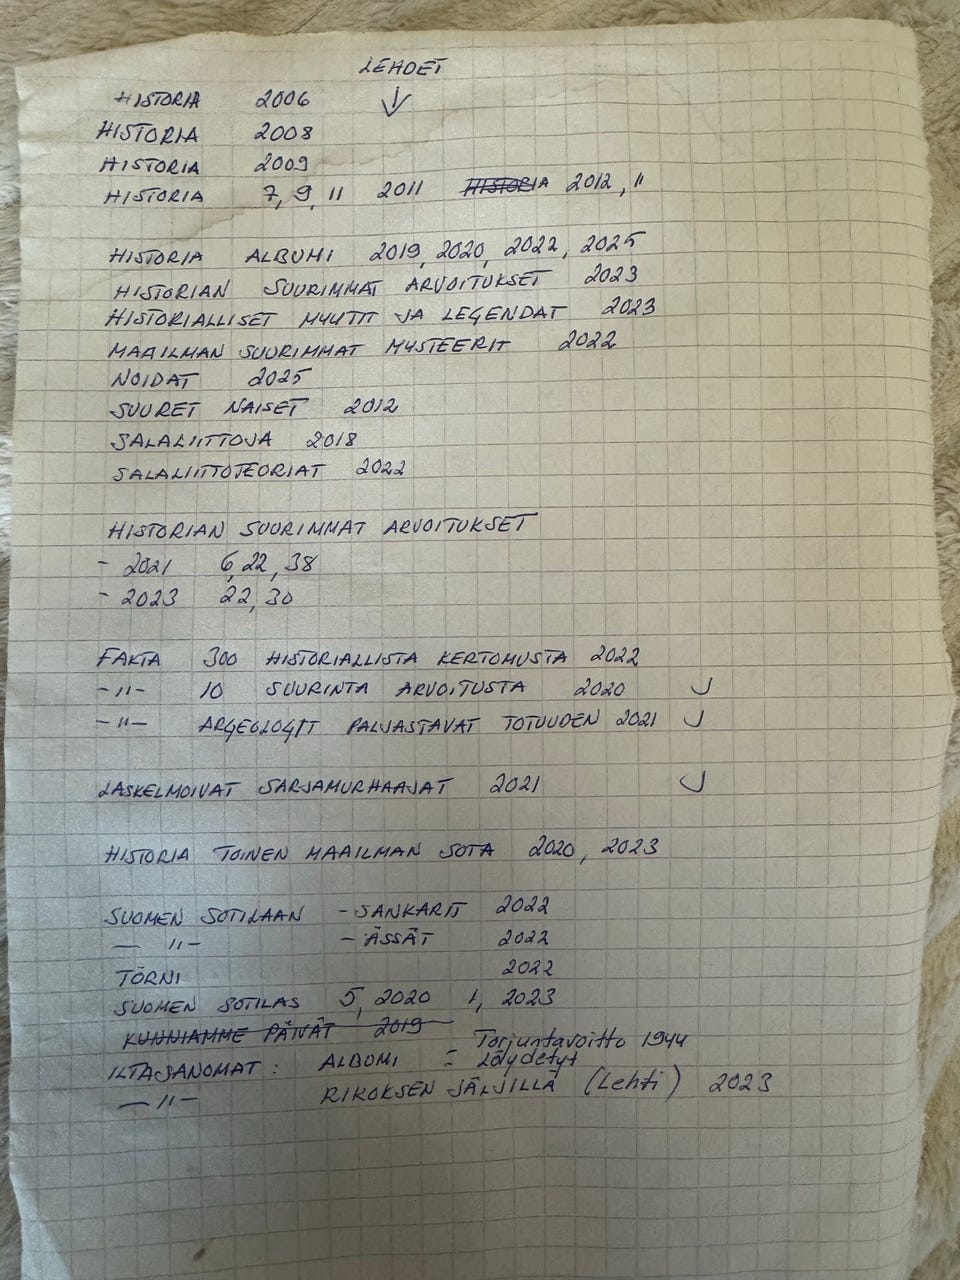 LEHDET
↓
HISTORIA 2006
HISTORIA 2008
HISTORIA 2009
HISTORIA 7, 9, 11 2011 HISTORIA 2012, 11
HISTORIA ALBUMI 2019, 2020, 2022, 2025
HISTORIAN SUURIMMAT ARVOITUKSET 2023
HISTORIALLISET MYYTIT JA LEGENDAT 2023
MAAILMAN SUURIMMAT MYSTEERIT 2022
NOIDAT 2025
SUURET NAISET 2012
SALALIITTOJA 2018
SALALIITTOTEORIAT 2022
HISTORIAN SUURIMMAT ARVOITUKSET
- 2021 6, 22, 38
- 2023 22, 30
FAKTA 300 HISTORIALLISTA KERTOMUSTA 2022
-"- 10 SUURINTA ARVOITUSTA 2020 ✓
-"- ARGEOLOGIT PALJASTAVAT TOTUUDEN 2021 ✓
LASKELMOIVAT SARJAMURHAAJAT 2021 ✓
HISTORIA TOINEN MAAILMAN SOTA 2020, 2023
SUOMEN SOTILAAN - SANKARIT 2022
-"- - ÄSSÄT 2022
TÖRNI 2022
SUOMEN SOTILAS 5, 2020 1, 2023
KUNNIAMME PÄIVÄT 2019
ILTASANOMAT: ALBUMI - Torjuntavoitto 1944
- Löydetyt
-"- RIKOKSEN JÄLJILLÄ (Lehti) 2023